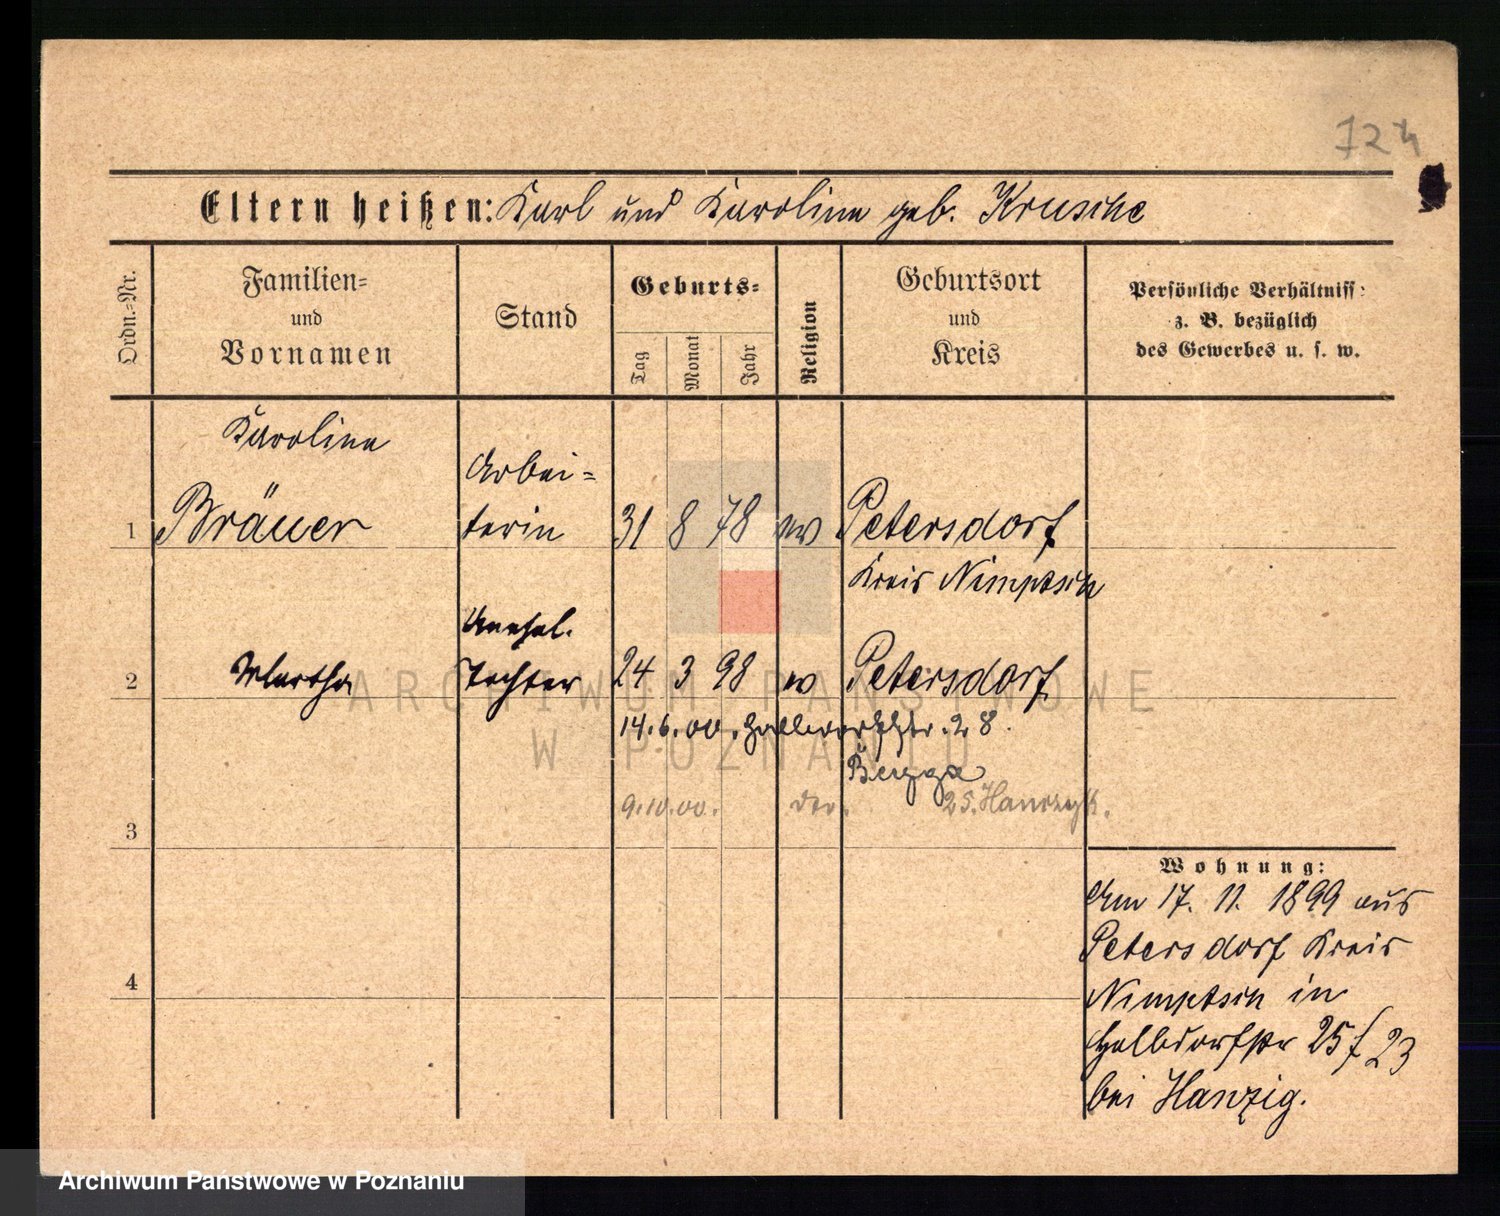 724
Eltern heißen: Karl und Karoline geb. Krusche
Ordn.-Nr.
Familien-
und
Vornamen
Stand
Geburts-
Tag
Monat
Jahr
Religion
Geburtsort
und
Kreis
Persönliche Verhältniss
z. B. bezüglich
des Gewerbes u. s. w.
Karoline
1 Bräuer
Arbei-
terin
31 8 78 ev
Petersdorf
Kreis Nimptsch
2 Martha
Tochter
24 3 98 ev
Petersdorf
14.6.00. Halbdorfstr. 28.
9.10.00. 25.
3
4
Wohnung:
Am 17. 11. 1899 aus
Petersdorf Kreis
Nimptsch in
Halbdorfstr 25 / 23
bei Hanzig.
ARCHIWUM PAŃSTWOWE
W POZNANIU
Archiwum Państwowe w Poznaniu